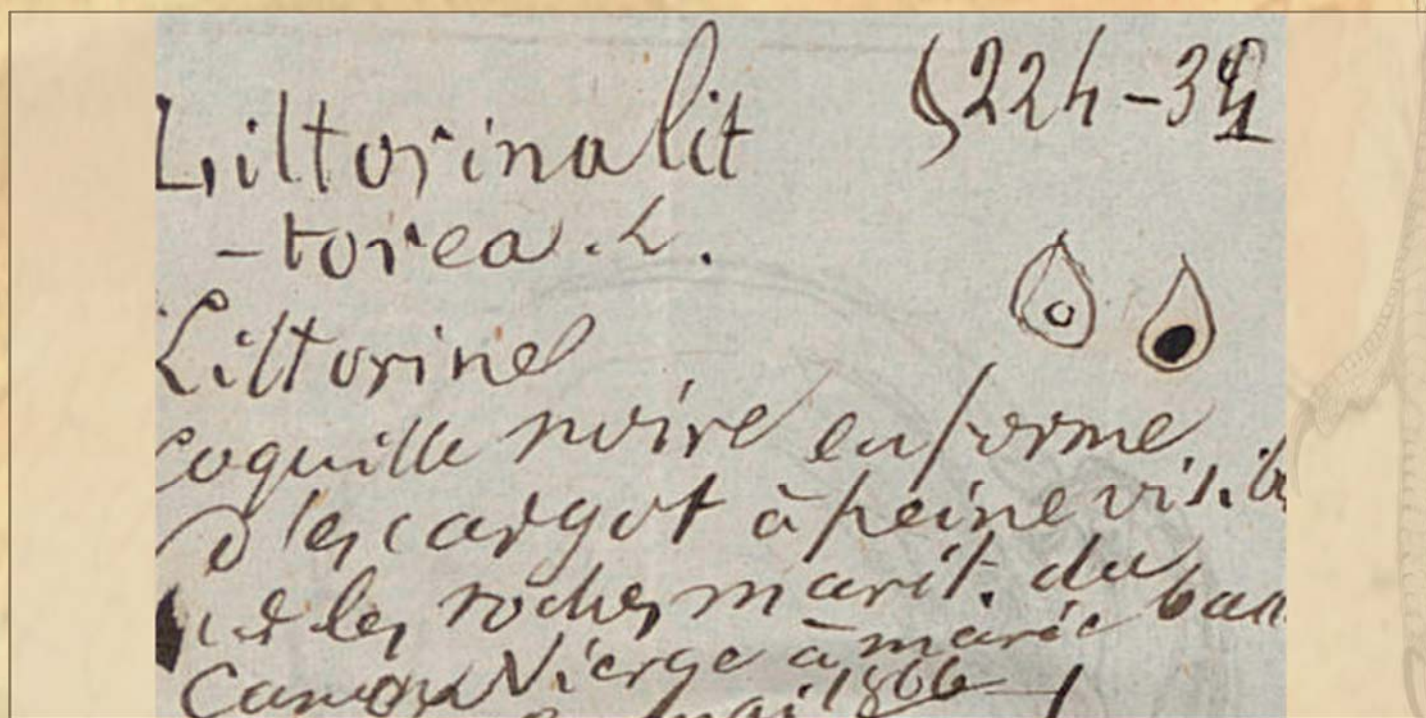 § 224-34
Littorina lit
-torea. L.
Littorine
coquille noire en forme
d'escargot à peine visib
les roches marit. du
Vierge à marée bas
mai 1866